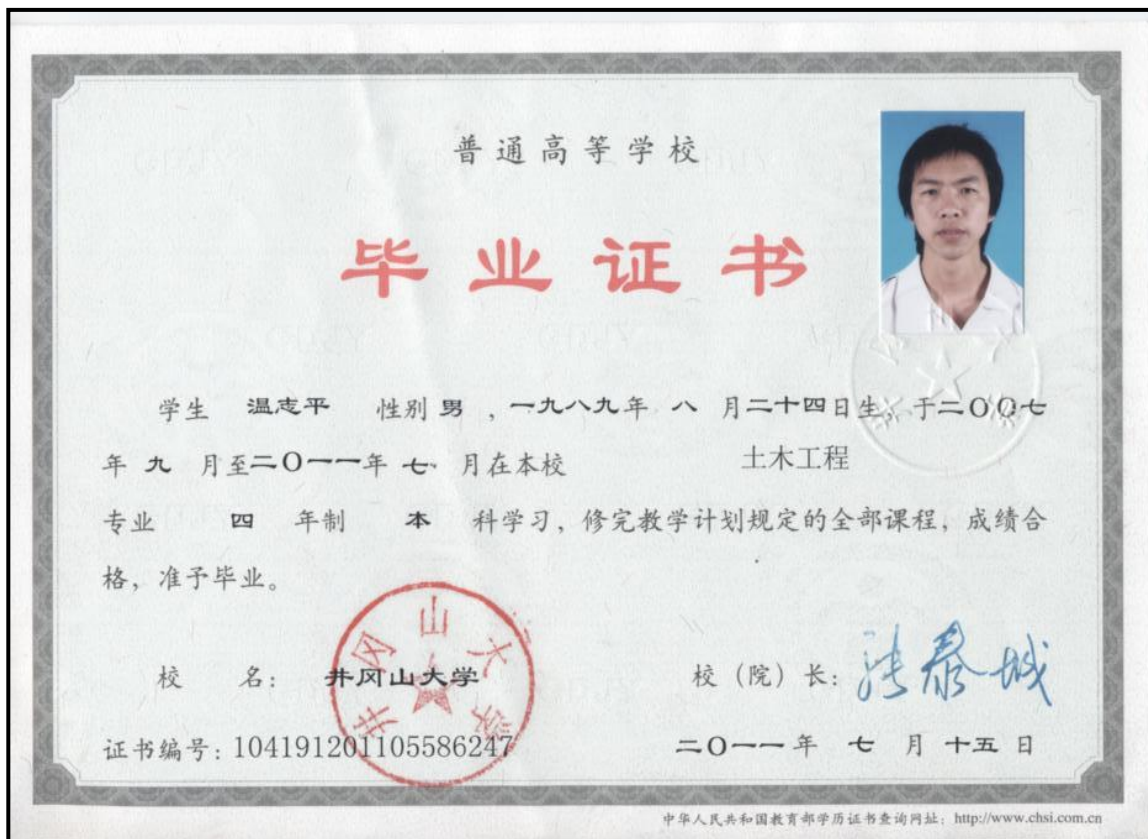 普通高等学校
毕业证书
学生 温志平 性别 男 ，一九八九年 八 月二十四日生，于二〇〇七
年 九 月至二〇一一年 七 月在本校 土木工程
专业 四 年制 本 科学习，修完教学计划规定的全部课程，成绩合
格，准予毕业。
井冈山大学
校 名： 井冈山大学 校（院）长：张泰城
证书编号：104191201105586247 二〇一一年 七 月 十五 日
中华人民共和国教育部学历证书查询网址：http://www.chsi.com.cn